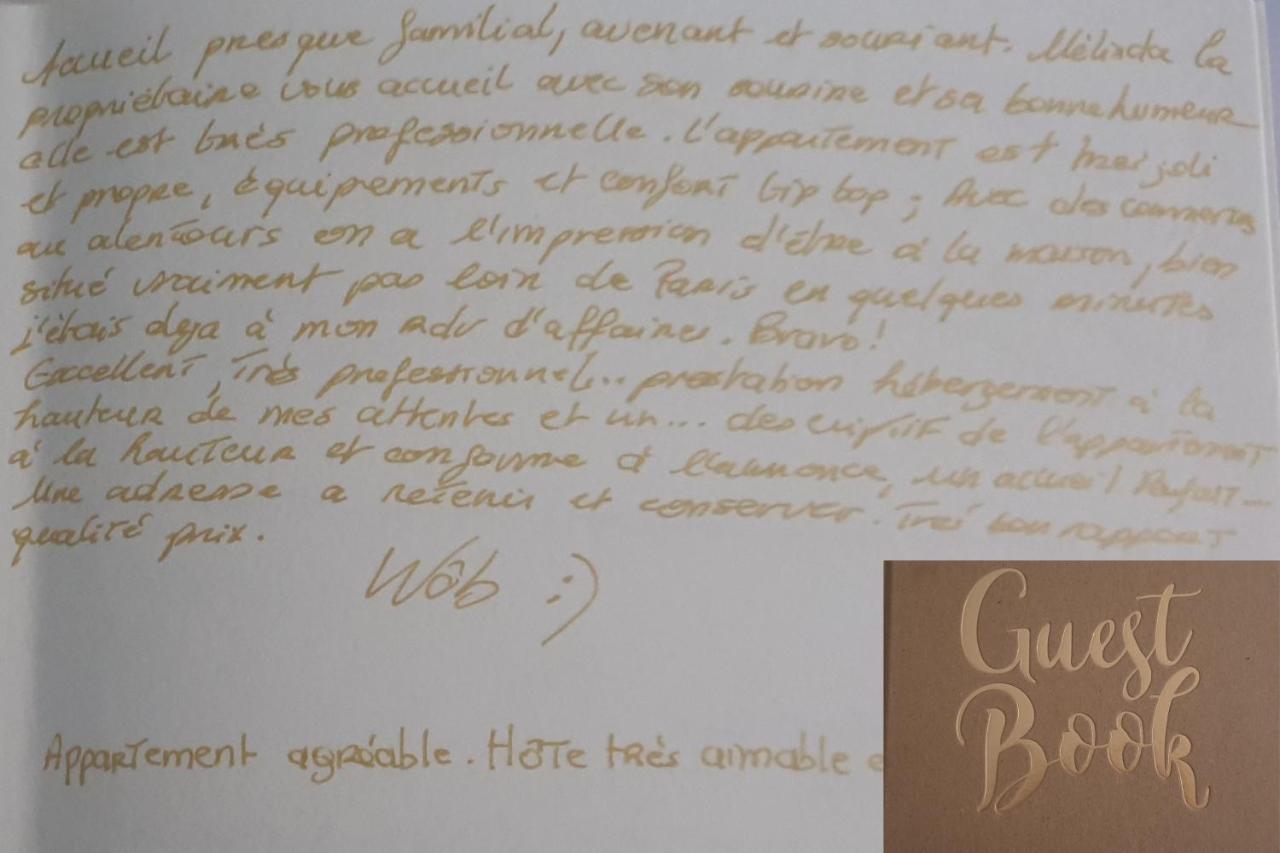 Accueil presque familial, avenant et souriant. Mélinda la
propriétaire vous accueil avec son sourire et sa bonne humeur
elle est très professionnelle. L'appartement est trei joli
et propre, équipements et confort tip top ; Avec des commerces
au alentours on a l'impression d'être à la maison, bien
situé vraiment pas loin de Paris en quelques minutes
j'étais deja à mon rdv d'affaires. Bravo !
Excellent, Très professionnel... prestation hébergement à la
hauteur de mes attentes et un... descriptif de l'appartement
à la hauteur et conforme à l'annonce, un accueil Parfait...
Une adresse a retenir et conserver. Tres bon rapport
qualité prix.
Wôb :)
Appartement agréable. Hôte très aimable e
Guest
Book